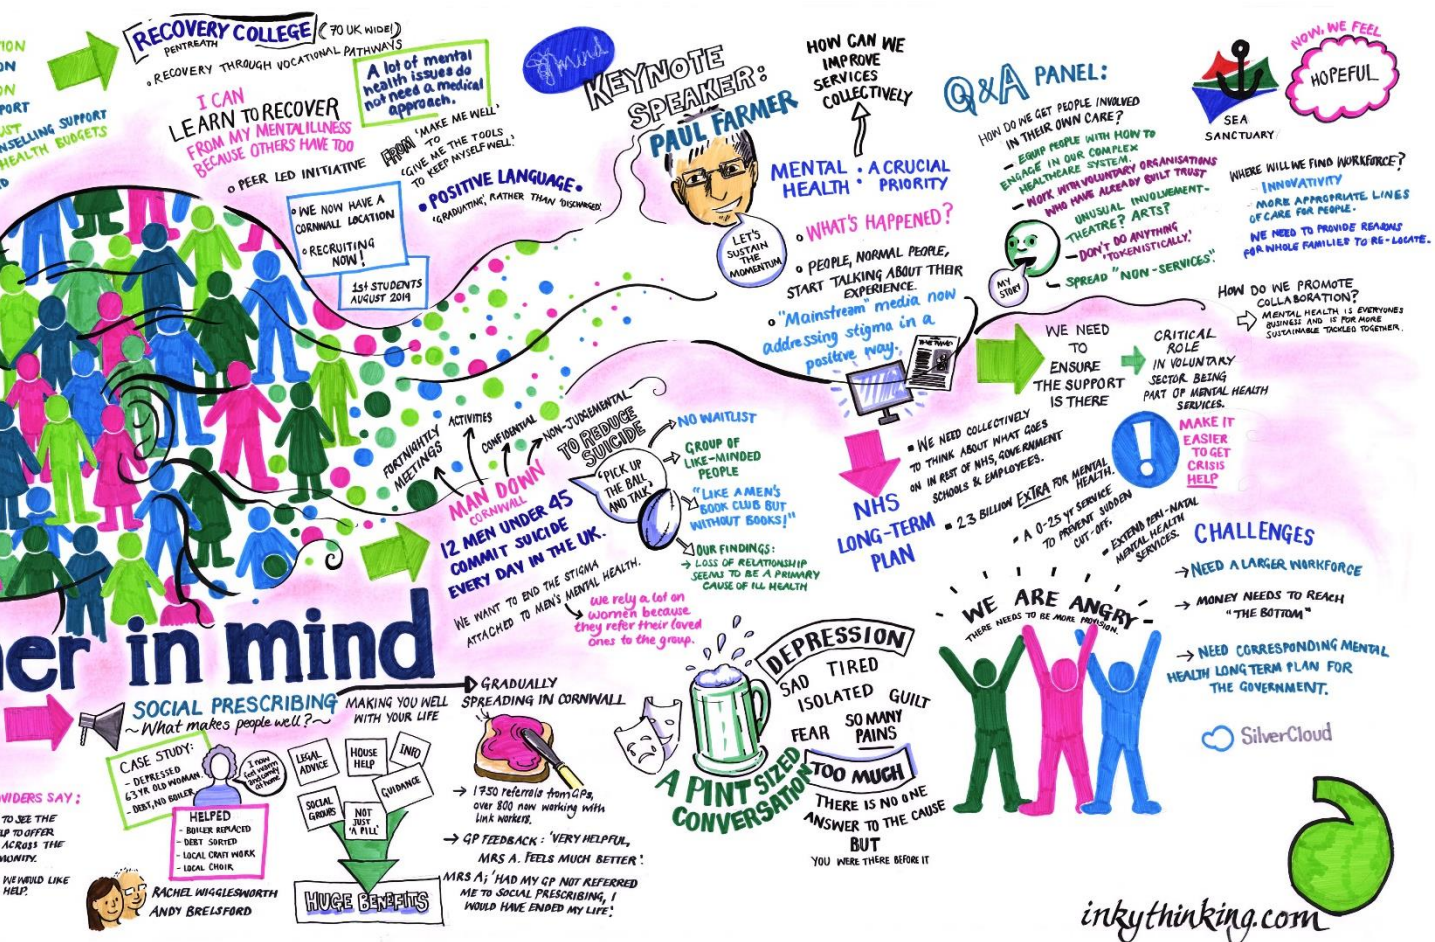 ION
ON
ION
PORT
UST
NSELLING SUPPORT
HEALTH BUDGETS
ED
RECOVERY COLLEGE (70 UK WIDE!)
PENTREATH
• RECOVERY THROUGH VOCATIONAL PATHWAYS
I CAN
LEARN TO RECOVER
FROM MY MENTAL ILLNESS
BECAUSE OTHERS HAVE TOO
A lot of mental
health issues do
not need a medical
approach.
• PEER LED INITIATIVE
FROM 'MAKE ME WELL'
TO
'GIVE ME THE TOOLS
TO KEEP MYSELF WELL'
• POSITIVE LANGUAGE •
'GRADUATING', RATHER THAN 'DISCHARGED'.
• WE NOW HAVE A
CORNWALL LOCATION
• RECRUITING
NOW!
1st STUDENTS
AUGUST 2019
mind
KEYNOTE
SPEAKER:
PAUL FARMER
LET'S
SUSTAIN
THE
MOMENTUM
HOW CAN WE
IMPROVE
SERVICES
COLLECTIVELY
MENTAL HEALTH : A CRUCIAL PRIORITY
• WHAT'S HAPPENED?
• PEOPLE, NORMAL PEOPLE,
START TALKING ABOUT THEIR
EXPERIENCE.
• "Mainstream" media now
addressing stigma in a
positive way.
Q&A PANEL:
HOW DO WE GET PEOPLE INVOLVED
IN THEIR OWN CARE?
- EQUIP PEOPLE WITH HOW TO
ENGAGE IN OUR COMPLEX
HEALTHCARE SYSTEM.
- WORK WITH VOLUNTARY ORGANISATIONS
WHO HAVE ALREADY BUILT TRUST
UNUSUAL INVOLVEMENT-
THEATRE? ARTS?
- DON'T DO ANYTHING
'TOKENISTICALLY.'
SPREAD "NON-SERVICES"
MY
STORY
SEA
SANCTUARY
NOW, WE FEEL
HOPEFUL
WHERE WILL WE FIND WORKFORCE?
INNOVATIVITY
MORE APPROPRIATE LINES
OF CARE FOR PEOPLE.
WE NEED TO PROVIDE REASONS
FOR WHOLE FAMILIES TO RE-LOCATE.
HOW DO WE PROMOTE
COLLABORATION?
MENTAL HEALTH IS EVERYONES
BUSINESS AND IS FOR MORE
SUSTAINABLE TACKLED TOGETHER.
WE NEED
TO
ENSURE
THE SUPPORT
IS THERE
CRITICAL
ROLE
IN VOLUNTARY
SECTOR BEING
PART OF MENTAL HEALTH
SERVICES.
MAKE IT
EASIER
TO GET
CRISIS
HELP
!
NHS
LONG-TERM
PLAN
▪ WE NEED COLLECTIVELY
TO THINK ABOUT WHAT GOES
ON IN REST OF NHS, GOVERNMENT
SCHOOLS & EMPLOYEES.
▪ 2.3 BILLION EXTRA FOR MENTAL
HEALTH.
▪ A 0-25 YR SERVICE
TO PREVENT SUDDEN
CUT-OFF.
▪ EXTEND PERI-NATAL
MENTAL HEALTH
SERVICES.
FORTNIGHTLY
MEETINGS
ACTIVITIES
CONFIDENTIAL
NON-JUDGEMENTAL
MAN DOWN
CORNWALL
TO REDUCE
SUICIDE
'PICK UP
THE BALL
AND TALK'
NO WAITLIST
GROUP OF
LIKE-MINDED
PEOPLE
"LIKE A MEN'S
BOOK CLUB BUT
WITHOUT BOOKS!"
OUR FINDINGS:
→ LOSS OF RELATIONSHIP
SEEMS TO BE A PRIMARY
CAUSE OF ILL HEALTH
12 MEN UNDER 45
COMMIT SUICIDE
EVERY DAY IN THE UK.
WE WANT TO END THE STIGMA
ATTACHED TO MEN'S MENTAL HEALTH.
we rely a lot on
women because
they refer their loved
ones to the group.
er in mind
SOCIAL PRESCRIBING
~What makes people well?~
MAKING YOU WELL
WITH YOUR LIFE
GRADUALLY
SPREADING IN CORNWALL
CASE STUDY:
- DEPRESSED
63 YR OLD WOMAN.
- DEBT, NO BOILER
I now
feel warm
and comfy
at home
HELPED
- BOILER REPLACED
- DEBT SORTED
- LOCAL CRAFT WORK
- LOCAL CHOIR
LEGAL
ADVICE
HOUSE
HELP
INFO
GUIDANCE
SOCIAL
GROUPS
NOT
JUST
'A PILL'
HUGE BENEFITS
→ 1750 referrals from GPs,
over 800 now working with
link workers.
→ GP FEEDBACK: 'VERY HELPFUL,
MRS A. FEELS MUCH BETTER'.
MRS A; 'HAD MY GP NOT REFERRED
ME TO SOCIAL PRESCRIBING, I
WOULD HAVE ENDED MY LIFE'.
OVIDERS SAY:
TO SEE THE
LP TO OFFER
ACROSS THE
MUNITY.
WE WOULD LIKE
HELP.
RACHEL WIGGLESWORTH
ANDY BRELSFORD
A PINT SIZED
CONVERSATION
DEPRESSION
SAD
TIRED
ISOLATED
GUILT
FEAR
SO MANY
PAINS
TOO MUCH
THERE IS NO ONE
ANSWER TO THE CAUSE
BUT
YOU WERE THERE BEFORE IT
- WE ARE ANGRY -
THERE NEEDS TO BE MORE PROVISION.
CHALLENGES
→ NEED A LARGER WORKFORCE
→ MONEY NEEDS TO REACH
"THE BOTTOM"
→ NEED CORRESPONDING MENTAL
HEALTH LONG TERM PLAN FOR
THE GOVERNMENT.
SilverCloud
inkythinking.com